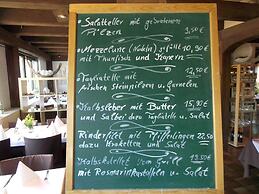 Salatteller mit gebratenen
Pilzen 9,50 €
Mezzelune (Nudeln) gefüllt 10,90 €
mit Thunfisch und Kapern
Tagliatelle mit 12,50 €
frischen Steinpilzen u. Garnelen
Kalbsleber mit Butter 15,90 €
und Salbei dazu Tagliatelle u. Salat
Rinderfilet mit Pfifferlingen 22,50
dazu Kroketten und Salat €
Kalbskotelett vom Grill 19,50 €
mit Rosmarinkartoffeln u. Salat